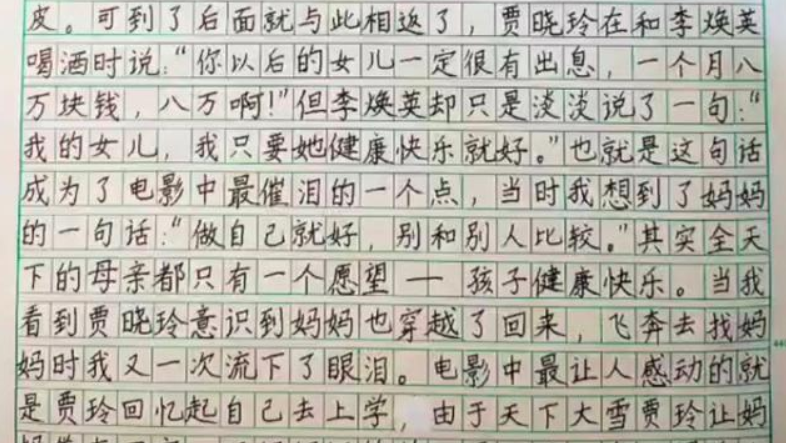 皮。可到了后面就与此相返了，贾晓玲在和李焕英
喝酒时说："你以后的女儿一定很有出息，一个月八
万块钱，八万啊！"但李焕英却只是淡淡说了一句："
我的女儿，我只要她健康快乐就好。"也就是这句话
成为了电影中最催泪的一个点，当时我想到了妈妈
的一句话："做自己就好，别和别人比较。"其实全天
下的母亲都只有一个愿望——孩子健康快乐。当我
看到贾晓玲意识到妈妈也穿越了回来，飞奔去找妈
妈时我又一次流下了眼泪。电影中最让人感动的就
是贾玲回忆起自己去上学，由于天下大雪贾玲让妈